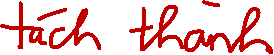 tách thành